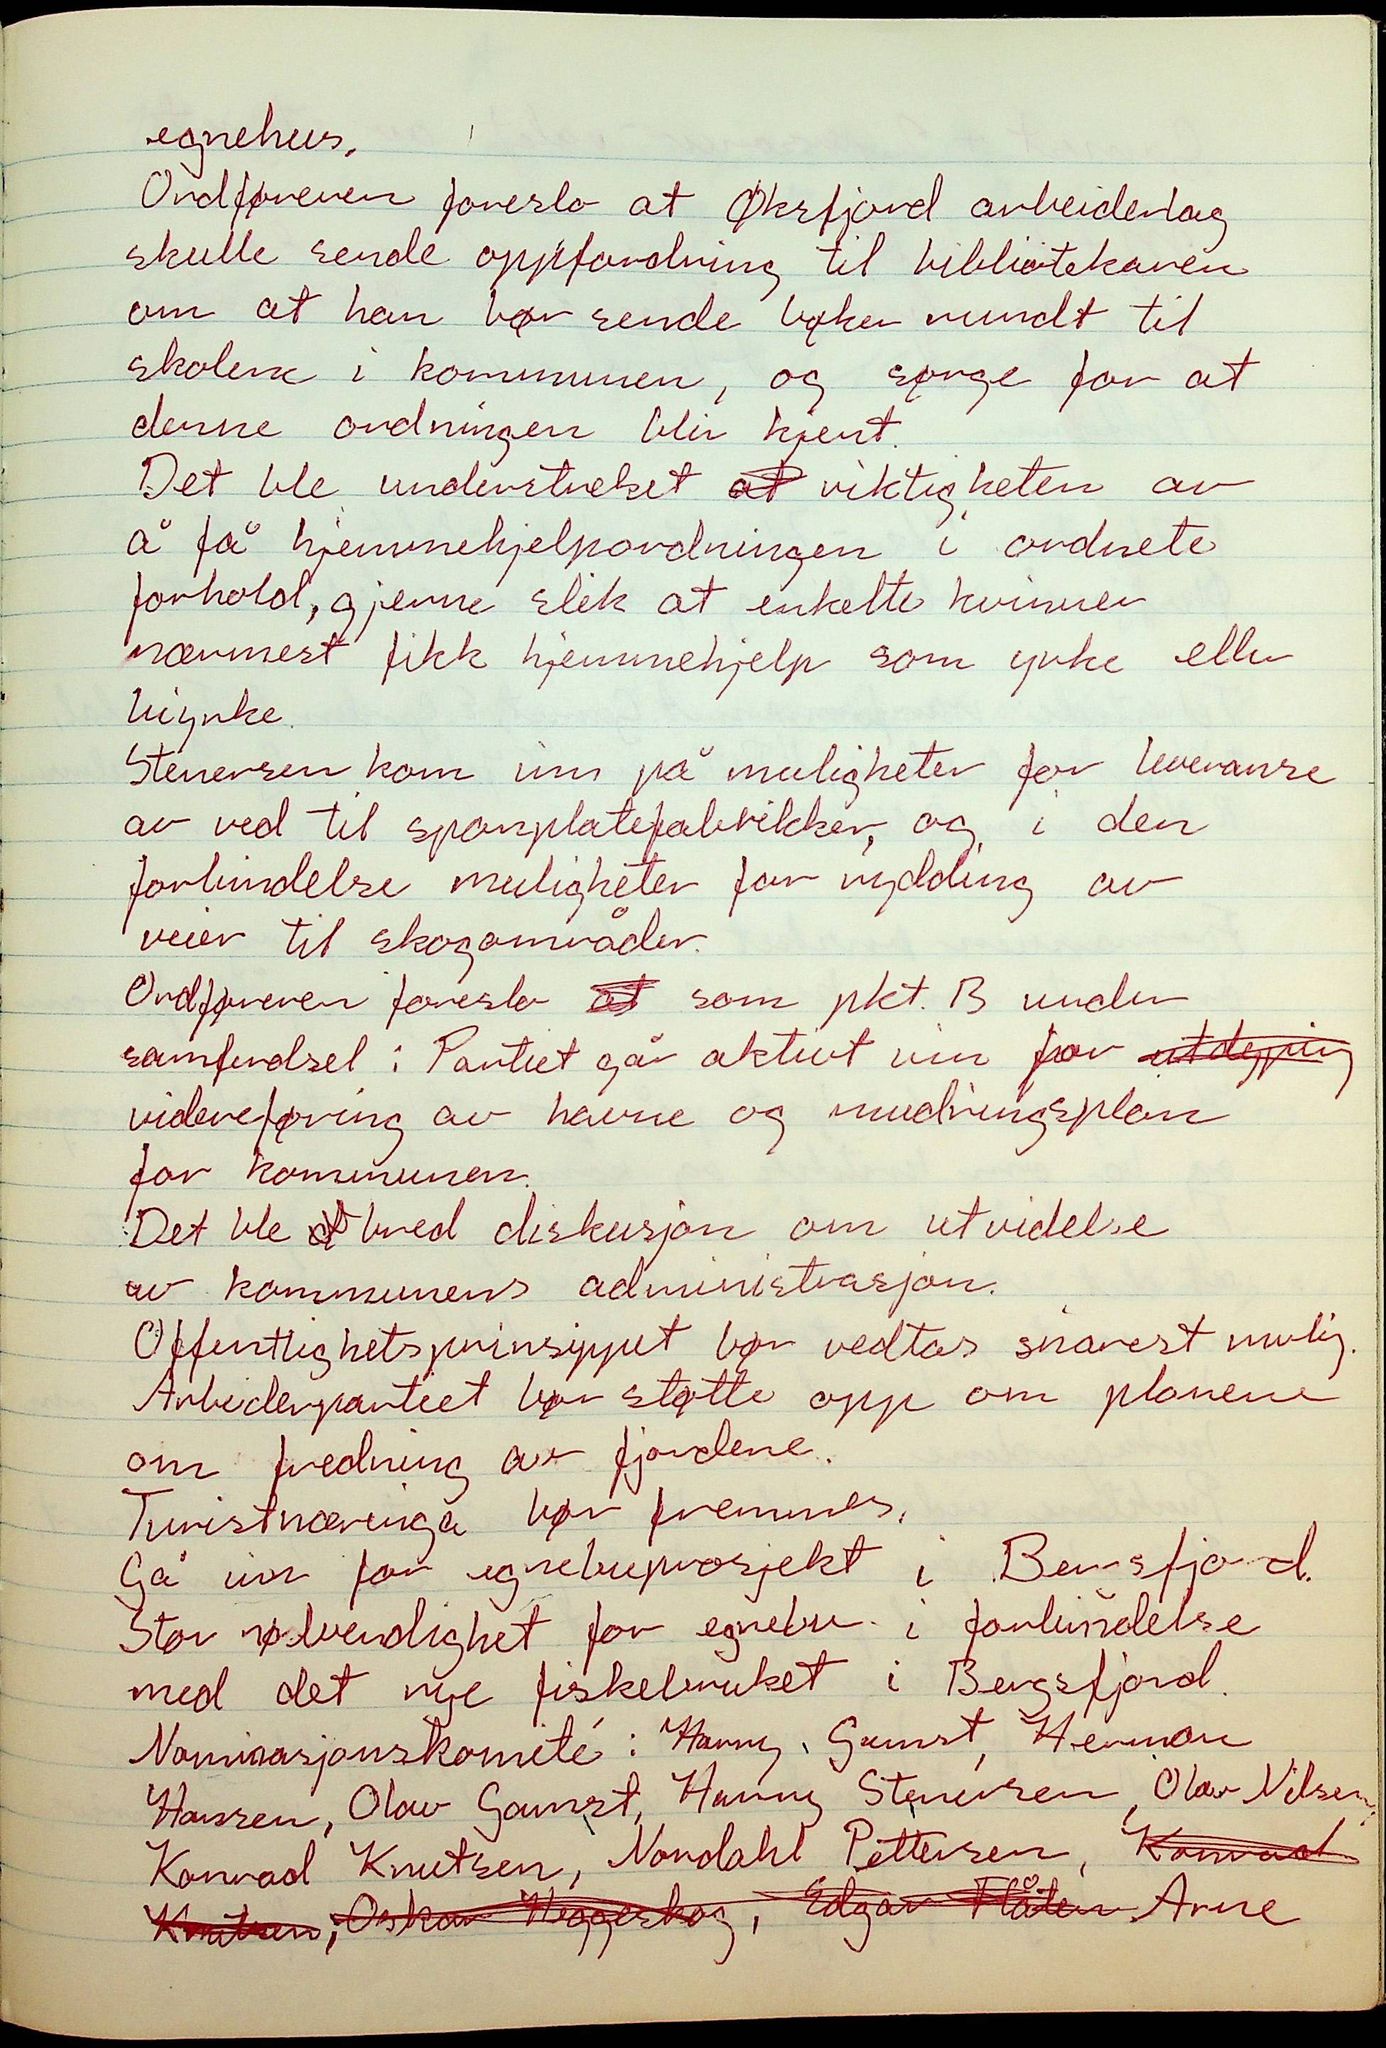 egnehus.
Ordføreren foreslo at Øksfjord arbeiderlag
skulle sende oppfordring til bibliotekaren
om at han bør sende bøker rundt til
skolene i kommunen, og sørge for at
denne ordningen blir kjent.
Det ble understreket at viktigheten av
å få hjemmehjelpordningen i ordnete
forhold, gjerne slik at enkelte kvinner
nærmest fikk hjemmehjelp som yrke eller
biyrke.
Stenersen kom inn på muligheter for leveranse
av ved til sponplatefabrikker, og i den
forbindelse muligheter for rydding av
veier til skogområder.
Ordføreren foreslo at som pkt. B under
samferdsel: Partiet går aktivt inn for utdyping
videreføring av havne og mudringsplan
for kommunen.
Det ble bred diskusjon om utvidelse
av kommunens administrasjon.
Offentlighetsprinsippet bør vedtas snarest mulig.
Arbeiderpartiet bør støtte opp om planene
om fredning av fjordene.
Turistnæringa bør fremmes.
Gå inn for egnebuprosjekt i Bergsfjord.
Stor nødvendighet for egnebu i forbindelse
med det nye fiskebruket i Bergsfjord.
Nominasjonskomité: Harry Gamst, Herman
Hansen, Olav Gamst, Harry Stenersen, Olav Nilsen,
Konrad Knutsen, Nordahl Pettersen, Konrad
Knutsen, Oskar Heggeskog, Edgar Flåten Arne